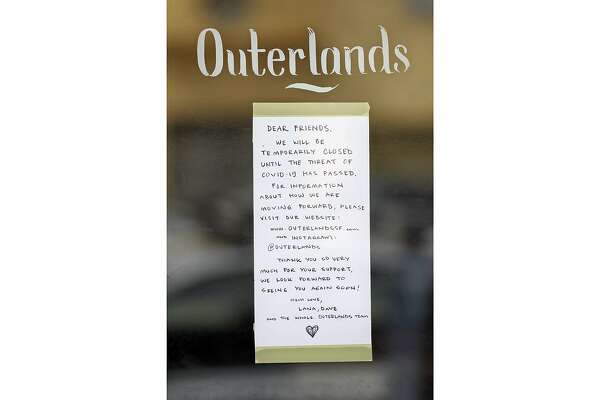 Outerlands
DEAR FRIENDS,
WE WILL BE
TEMPORARILY CLOSED
UNTIL THE THREAT OF
COVID-19 HAS PASSED.
FOR INFORMATION
ABOUT HOW WE ARE
MOVING FORWARD, PLEASE
VISIT OUR WEBSITE:
WWW.OUTERLANDSSF.COM
AND INSTAGRAM:
@OUTERLANDS
THANK YOU SO VERY
MUCH FOR YOUR SUPPORT,
WE LOOK FORWARD TO
SEEING YOU AGAIN SOON!
LOVE,
LANA, DAVE
AND THE WHOLE OUTERLANDS TEAM